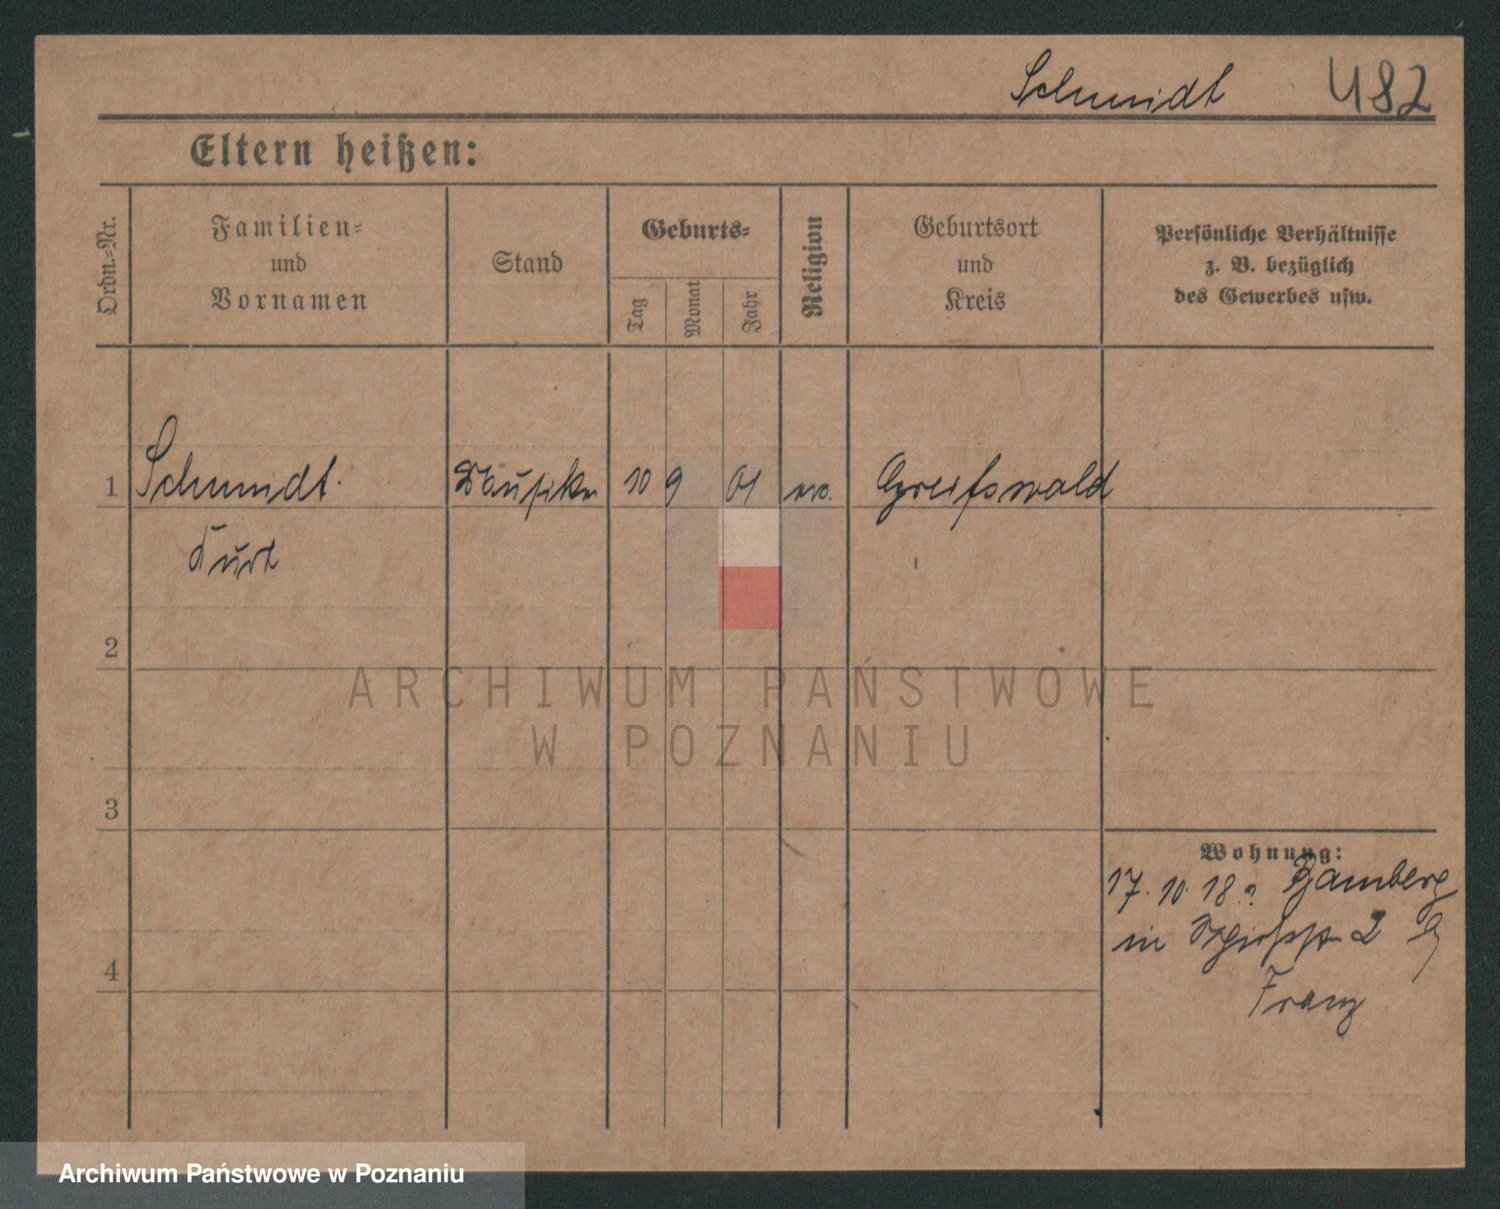 Schmidt 482
Eltern heißen:
Ordn.-Nr.
Familien-
und
Vornamen
Stand
Geburts-
Tag
Monat
Jahr
Religion
Geburtsort
und
Kreis
Persönliche Verhältnisse
z. B. bezüglich
des Gewerbes usw.
1 Schmidt Musiker 10 9 01 Greifswald
Kurt
2
3
4
Wohnung:
17. 10. 18. Bamberg
in 2
Franz
ARCHIWUM PAŃSTWOWE
W POZNANIU
Archiwum Państwowe w Poznaniu